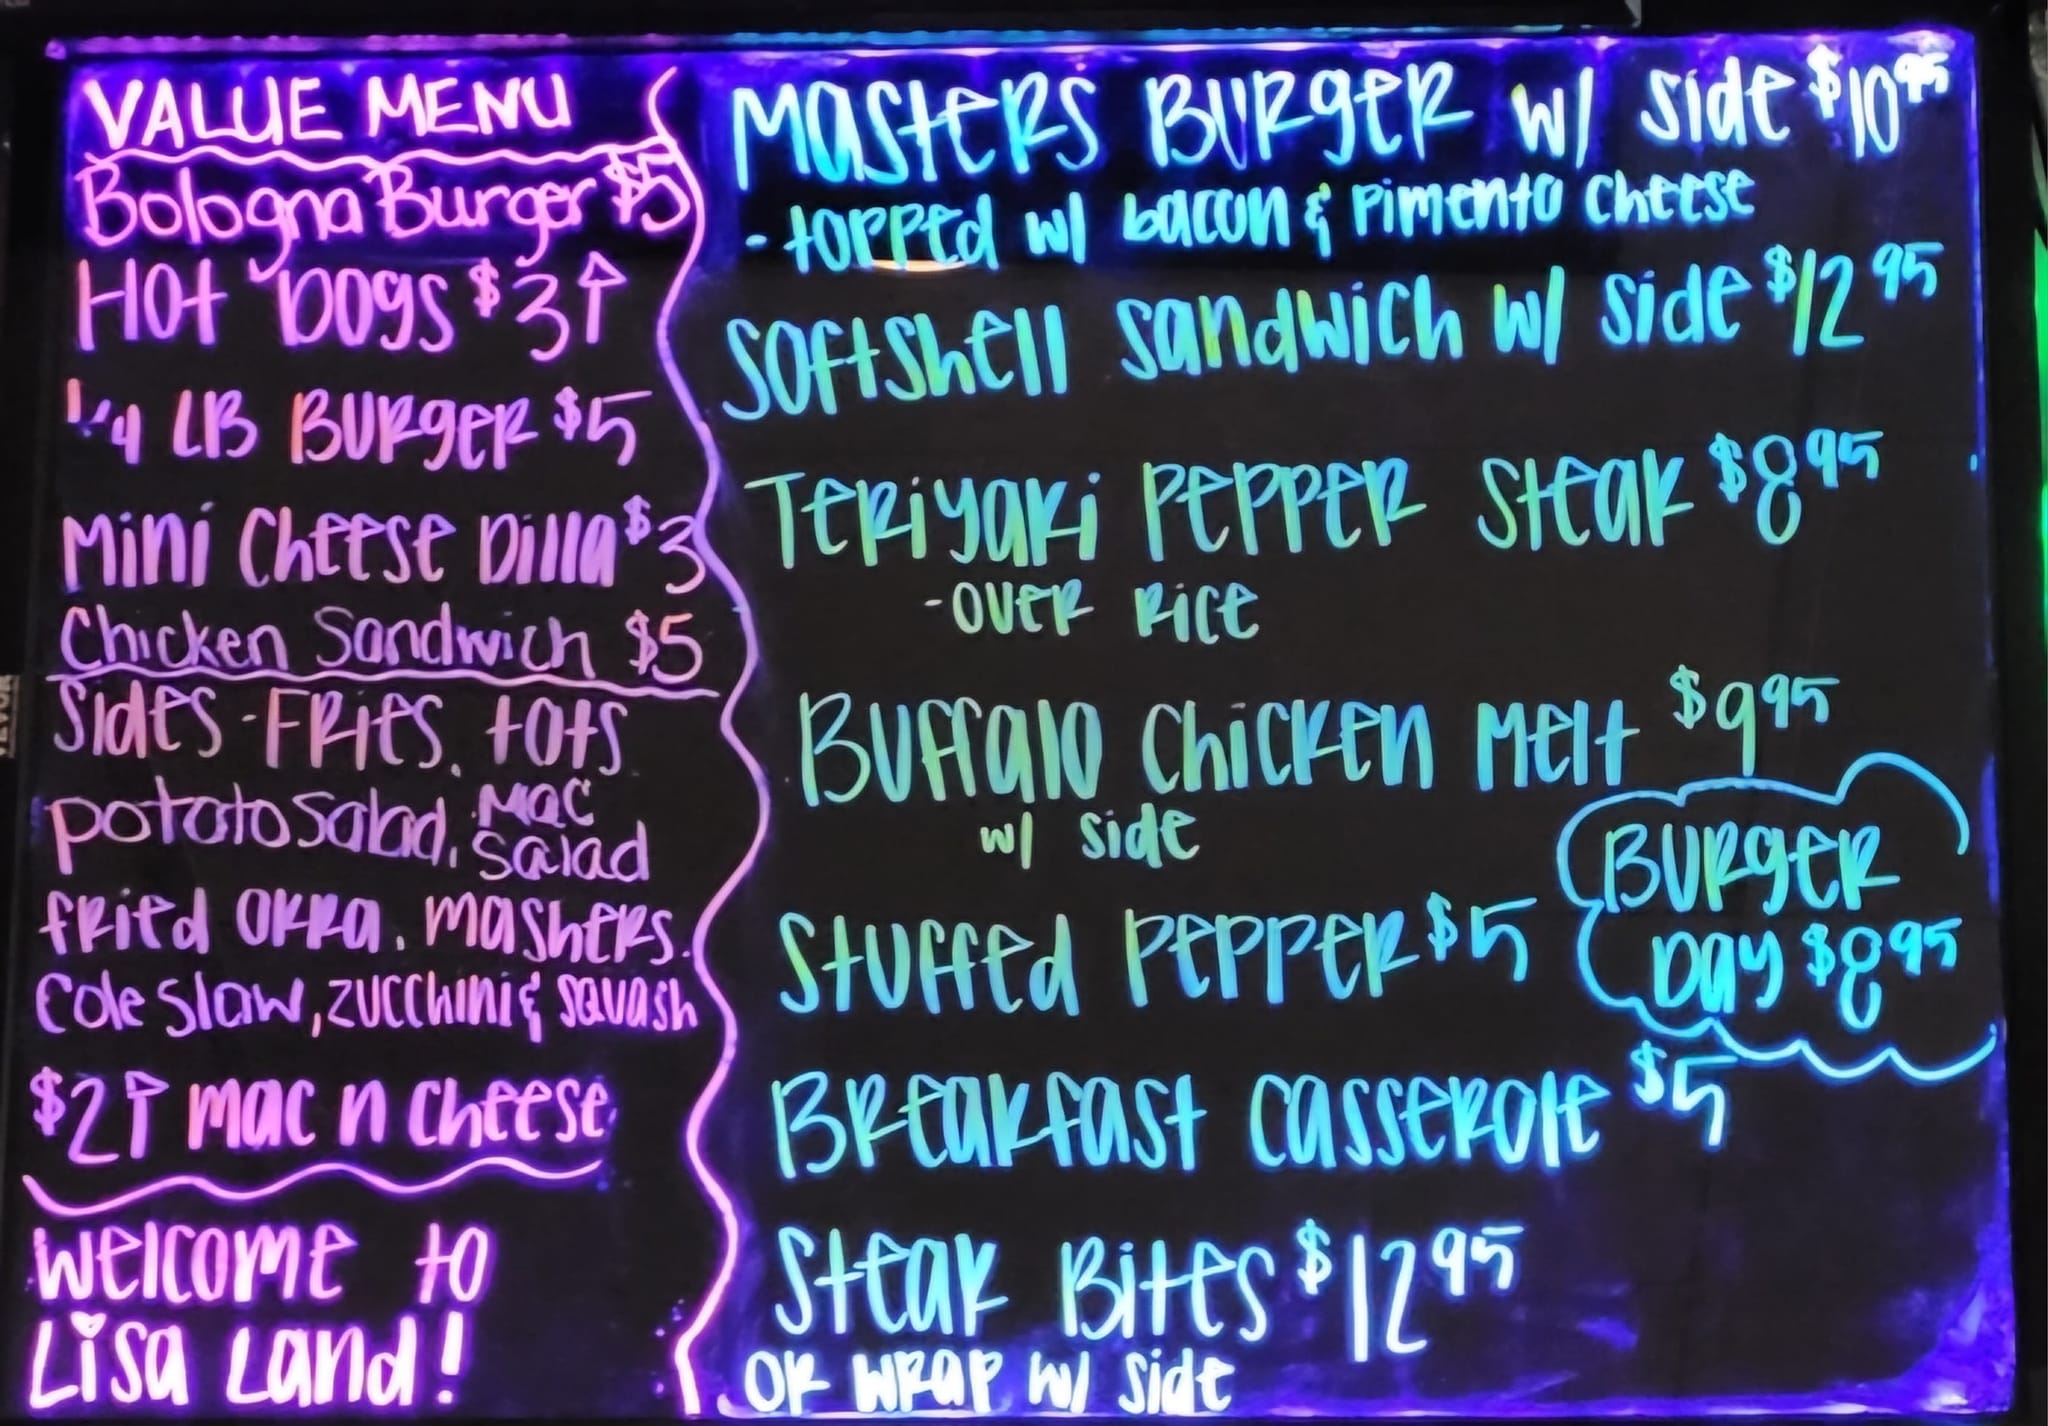 VALUE MENU
Bologna Burger $5
Hot Dogs $3↑
1/4 LB BURGER $5
Mini Cheese Dilla $3
Chicken Sandwich $5
Sides - Fries, tots
potato Salad, Mac Salad
fried okra, mashers,
Cole Slaw, zucchini & squash
$2↑ mac n cheese
Welcome to
Lisa Land!
Masters Burger w/ side $10 95
- topped w/ bacon & pimento cheese
Softshell Sandwich w/ side $12 95
Teriyaki Pepper Steak $8 95
- over rice
Buffalo Chicken Melt $9 95
w/ side
Stuffed Pepper $5
Burger
Day $8 95
Breakfast Casserole $5
Steak Bites $12 95
or wrap w/ side